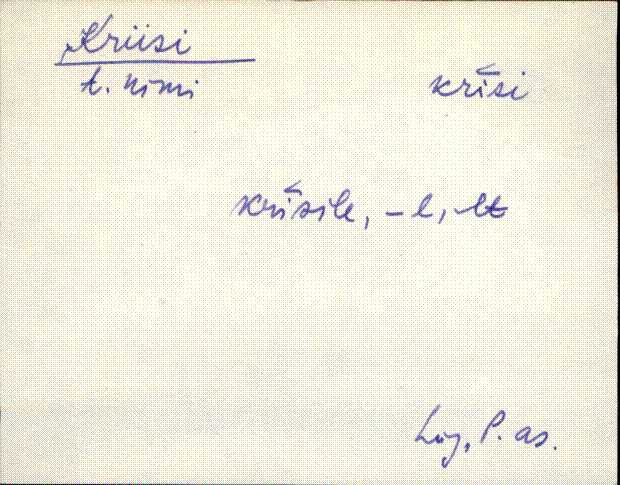 Kriisi
t. nimi krīsi
krīsile, -l, -lt
Lüg, P. as.